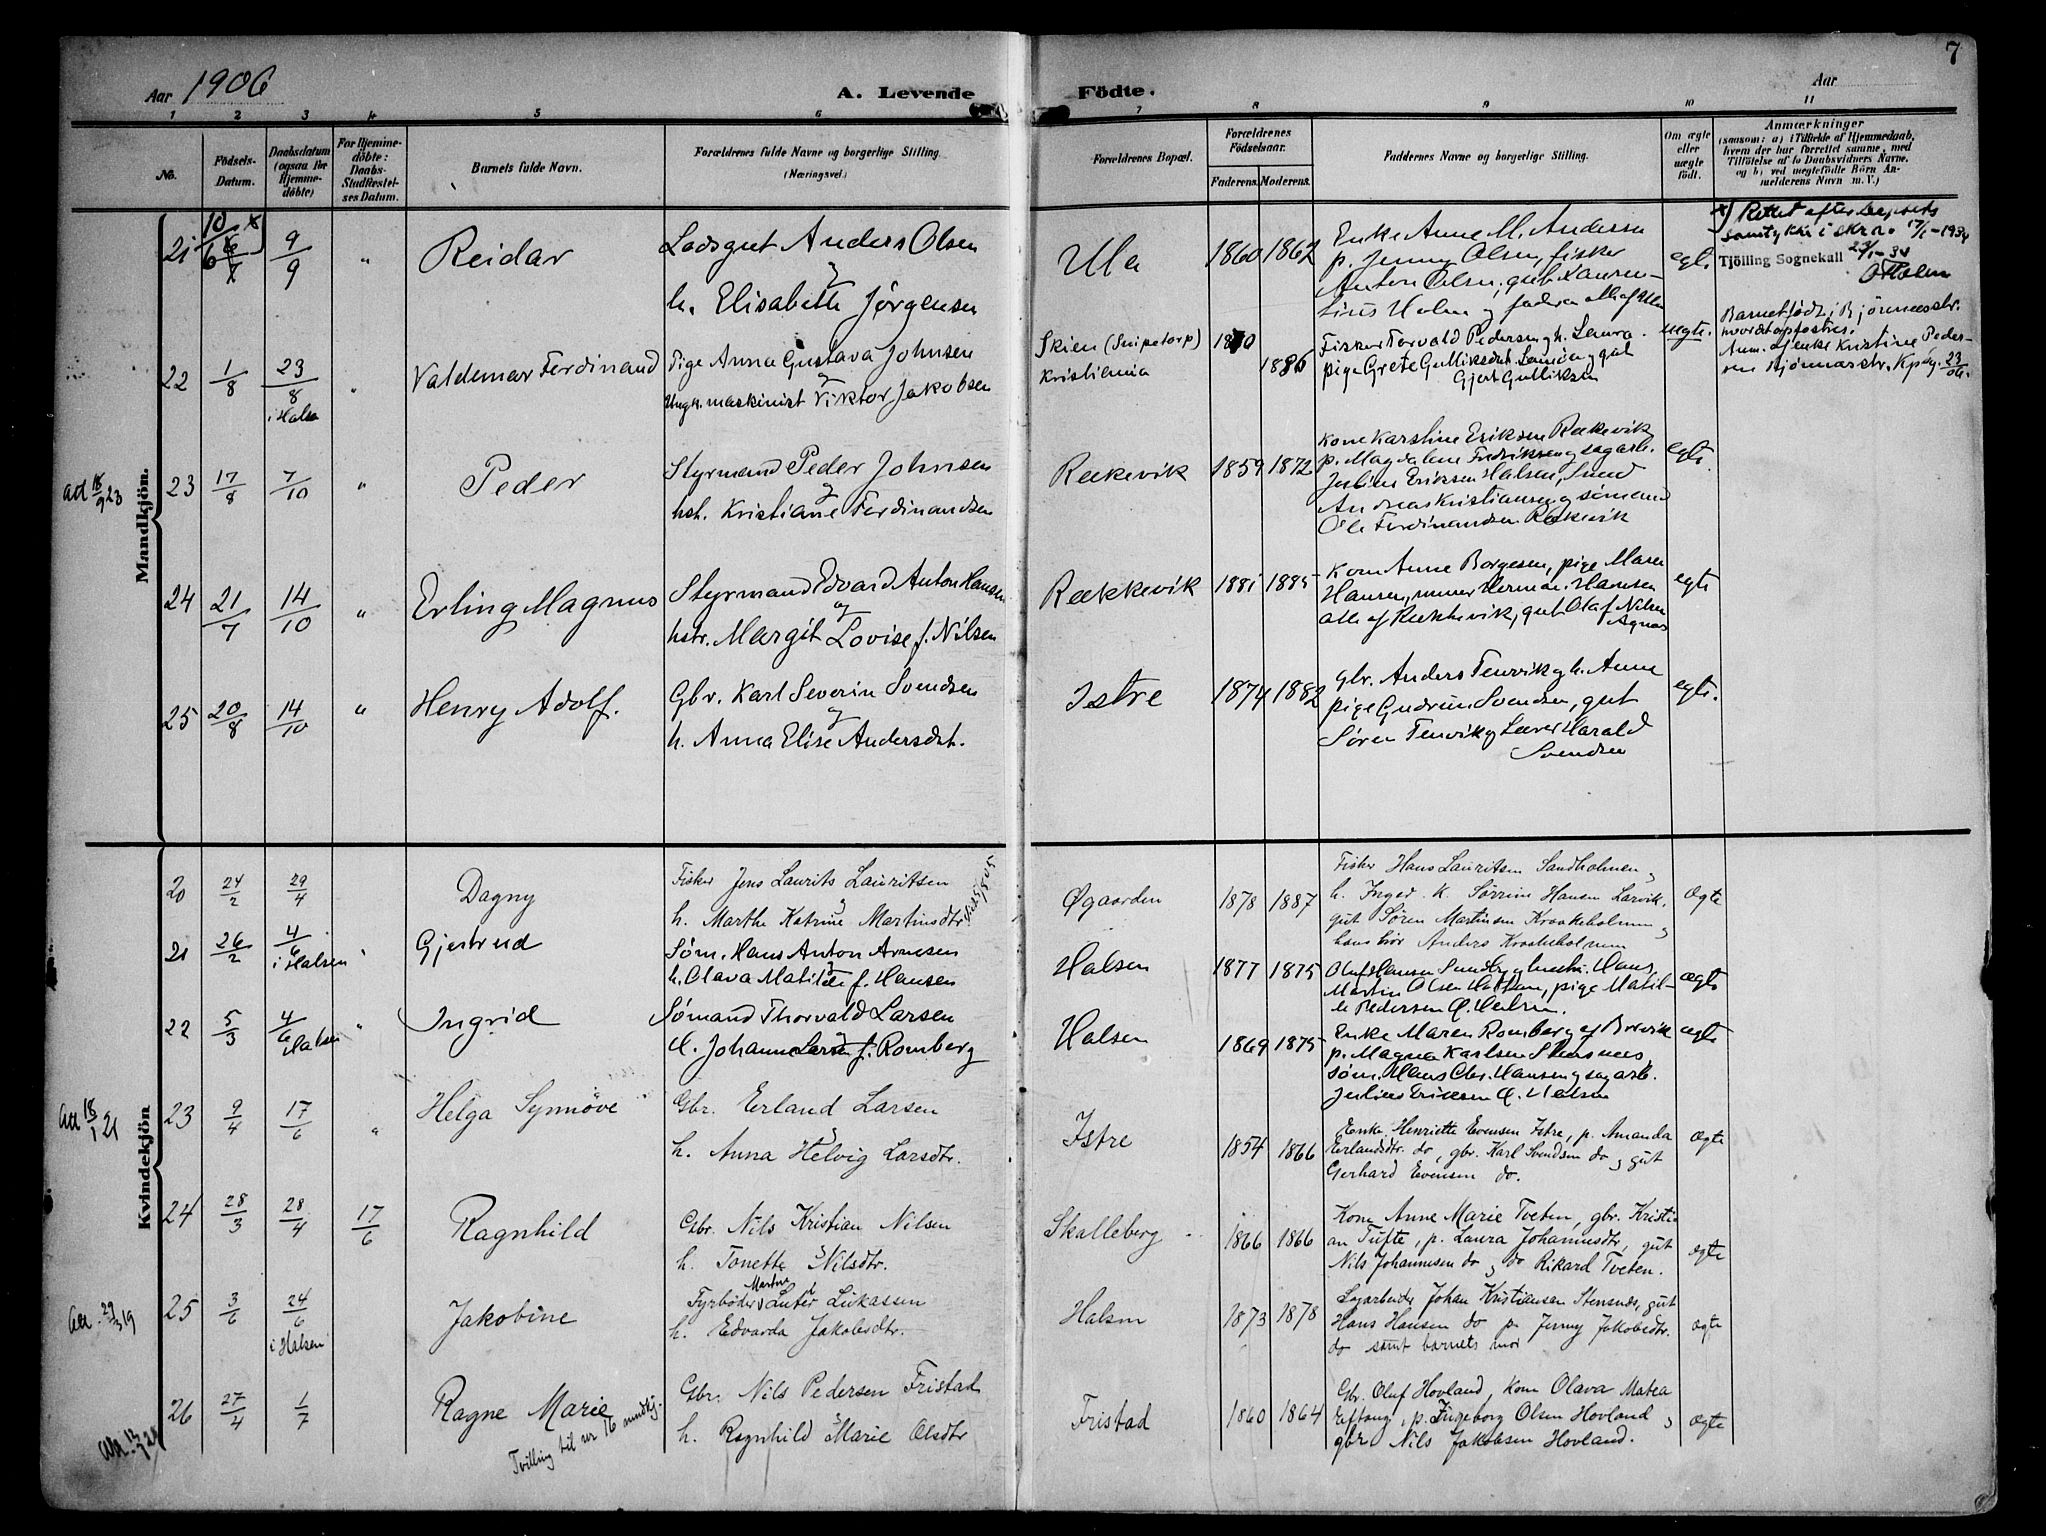 7
Aar 1906
A. Levende Födte.
Aar
1 2 3 4 5 6 7 8 9 10 11
No.
Födsels-Datum.
Daabsdatum (ogsaa for Hjemmedöbte)
For Hjemmedöbte: Daabs-Stadfæstelses Datum.
Barnets fulde Navn.
Forældrenes fulde Navne og borgerlige Stilling. (Næringsvei.)
Forældrenes Bopæl.
Forældrenes Födselsaar.
Faderens. Moderens.
Faddernes Navne og borgerlige Stilling.
Om ægte eller uægte födt.
Anmærkninger
(saasom: a) i Tilfælde af Hjemmedaab, hvem der har forrettet samme, med Tilföielse af to Daabsvidners Navne. og b) ved uægtefödte Börn Anmelderens Navn m. V.)
Mandkjön.
21 9/9 " Reidar
Lodsgut Anders Olsen
og
h. Elisabeth Jørgensen
Ula 1860 1862
Enke Anne M. Andersen
p. Jenny Olsen, fisker
Anton Olsen, gut Laurentius Holm og faderen alle af Ula
egte
x) Rettet efter
samtykke i skr. 17/1-1934
23/1-34
Tjölling Sognekall
O Holm
22 1/8 23/8 i Halsen " Valdemar Ferdinand
Pige Anna Gustava Johnsen
og
Ungk. maskinist Viktor Jakobsen
Skien (Snipetorp) 1870
Kristiania 1886
Fisker Torvald Pedersen og h. Laura.
pige Grete Gulliksdtr. og gut
Gjert Gulliksen
uegte.
Barnet født i Bjørnnesstr.
Anm. af enke Kristine Pedersen
23
17/8 7/10 " Peder
Styrmand Peder Johnsen
og
hst. Kristiane Ferdinandsen
Rekkevik 1859 1872
Kone Karstine Eriksen Rekkevik
p. Magdalene Fredriksen og sagarb.
Julius Eriksen Halsen,
Andreas Kristiansen og sømand
Ole Ferdinandsen Rekkevik
egte
24 21/7 14/10 " Erling Magnus
Styrmand Edvard Anton Hansen
og
hstr. Margit Lovise f. Nilsen
Rækkevik 1881 1885
Kone Anne Borgesen, pige Maren
Hansen, murer Herman Hansen
alle af Rekkevik, gut Olaf Nilsen
Agnes
egte
25 20/8 14/10 " Henry Adolf.
Gbr. Karl Severin Svendsen
og
h. Anna Elise Andersdt.
Istre 1874 1882
gbr. Anders Tenvik og h. Anne
pige Gudrun Svendsen, gut
Søren Tenvik og Lærer Harald
Svendsen
egte.
Kvindekjön
20 24/2 29/4 Dagny
Fisker Jens Laurits Lauritsen
og
h. Marthe Katrine Martinsdtr
Øgaarden 1878 1887
Fisker Hans Lauritsen Sandholmen,
h. Inged. K. Sørrine Hansen Larvik.
gut Søren Martinsen Krokeholmen og
hans bror Anders Krokeholmen
Ægte
21 26/2 4/6 i Halsen " Gjertrud
Søm. Hans Anton Arnesen
og
h. Olava Matilde f. Hansen
Halsen 1877 1875
Olaf Hansen Sundby og
Martin Olsen, pige Matilde Pedersen
ægte
22 5/3 4/6 Halsen " Ingrid
Sømand Thorvald Larsen
og
h. Johanne Larsen f. Romberg
Halsen 1869 1875
Enke Maren Romberg af Brevik
p. Magna Karlsen Stensnes,
søm. Hans Chr. Hansen og sagarb.
Julius Eriksen Halsen
egte
23 9/4 17/6 " Helga Synnøve
Gbr. Erland Larsen
og
h. Anna Helvig Larsdtr.
Istre 1854 1866
Enke Henriette Evensen Istre, p. Amanda
Erlandsdtr. do, gbr. Karl Svendsen do og gut
Gerhard Evensen do.
Ægte
24 28/3 28/4 17/6 Ragnhild
Gbr. Nils Kristian Nilsen
og
h. Tonette Nilsdtr.
Skalleberg 1866 1866
Kone Anne Marie Tveten, gbr. Kristian Tufte, p. Laura Johannesdtr, gut
Nils Johannesen do og do Rikard Tveten.
ægte
25 3/6 24/6 i Halsen Jakobine
Martin
Fyrbøder Luter Lukassen
og
h. Edvarda Jakobsdtr.
Halsen 1873 1878
Sagarbeider Johan Kristiansen Stensnes, gut
Hans Hansen do p. Jenny Jakobsdtr.
do samt barnets mor
ægte
26 27/4 1/7 Ragne Marie
Tvilling til nr 16 mndkj.
Gbr. Nils Pedersen Fristad
og
h. Ragnhild Marie Olsdtr
Fristad 1860 1864
Gbr. Oluf Hovland, kone Olava Matea
p. Ingeborg Olsen Hovland og
gbr. Nils Jakobsen Hovland.
ægte